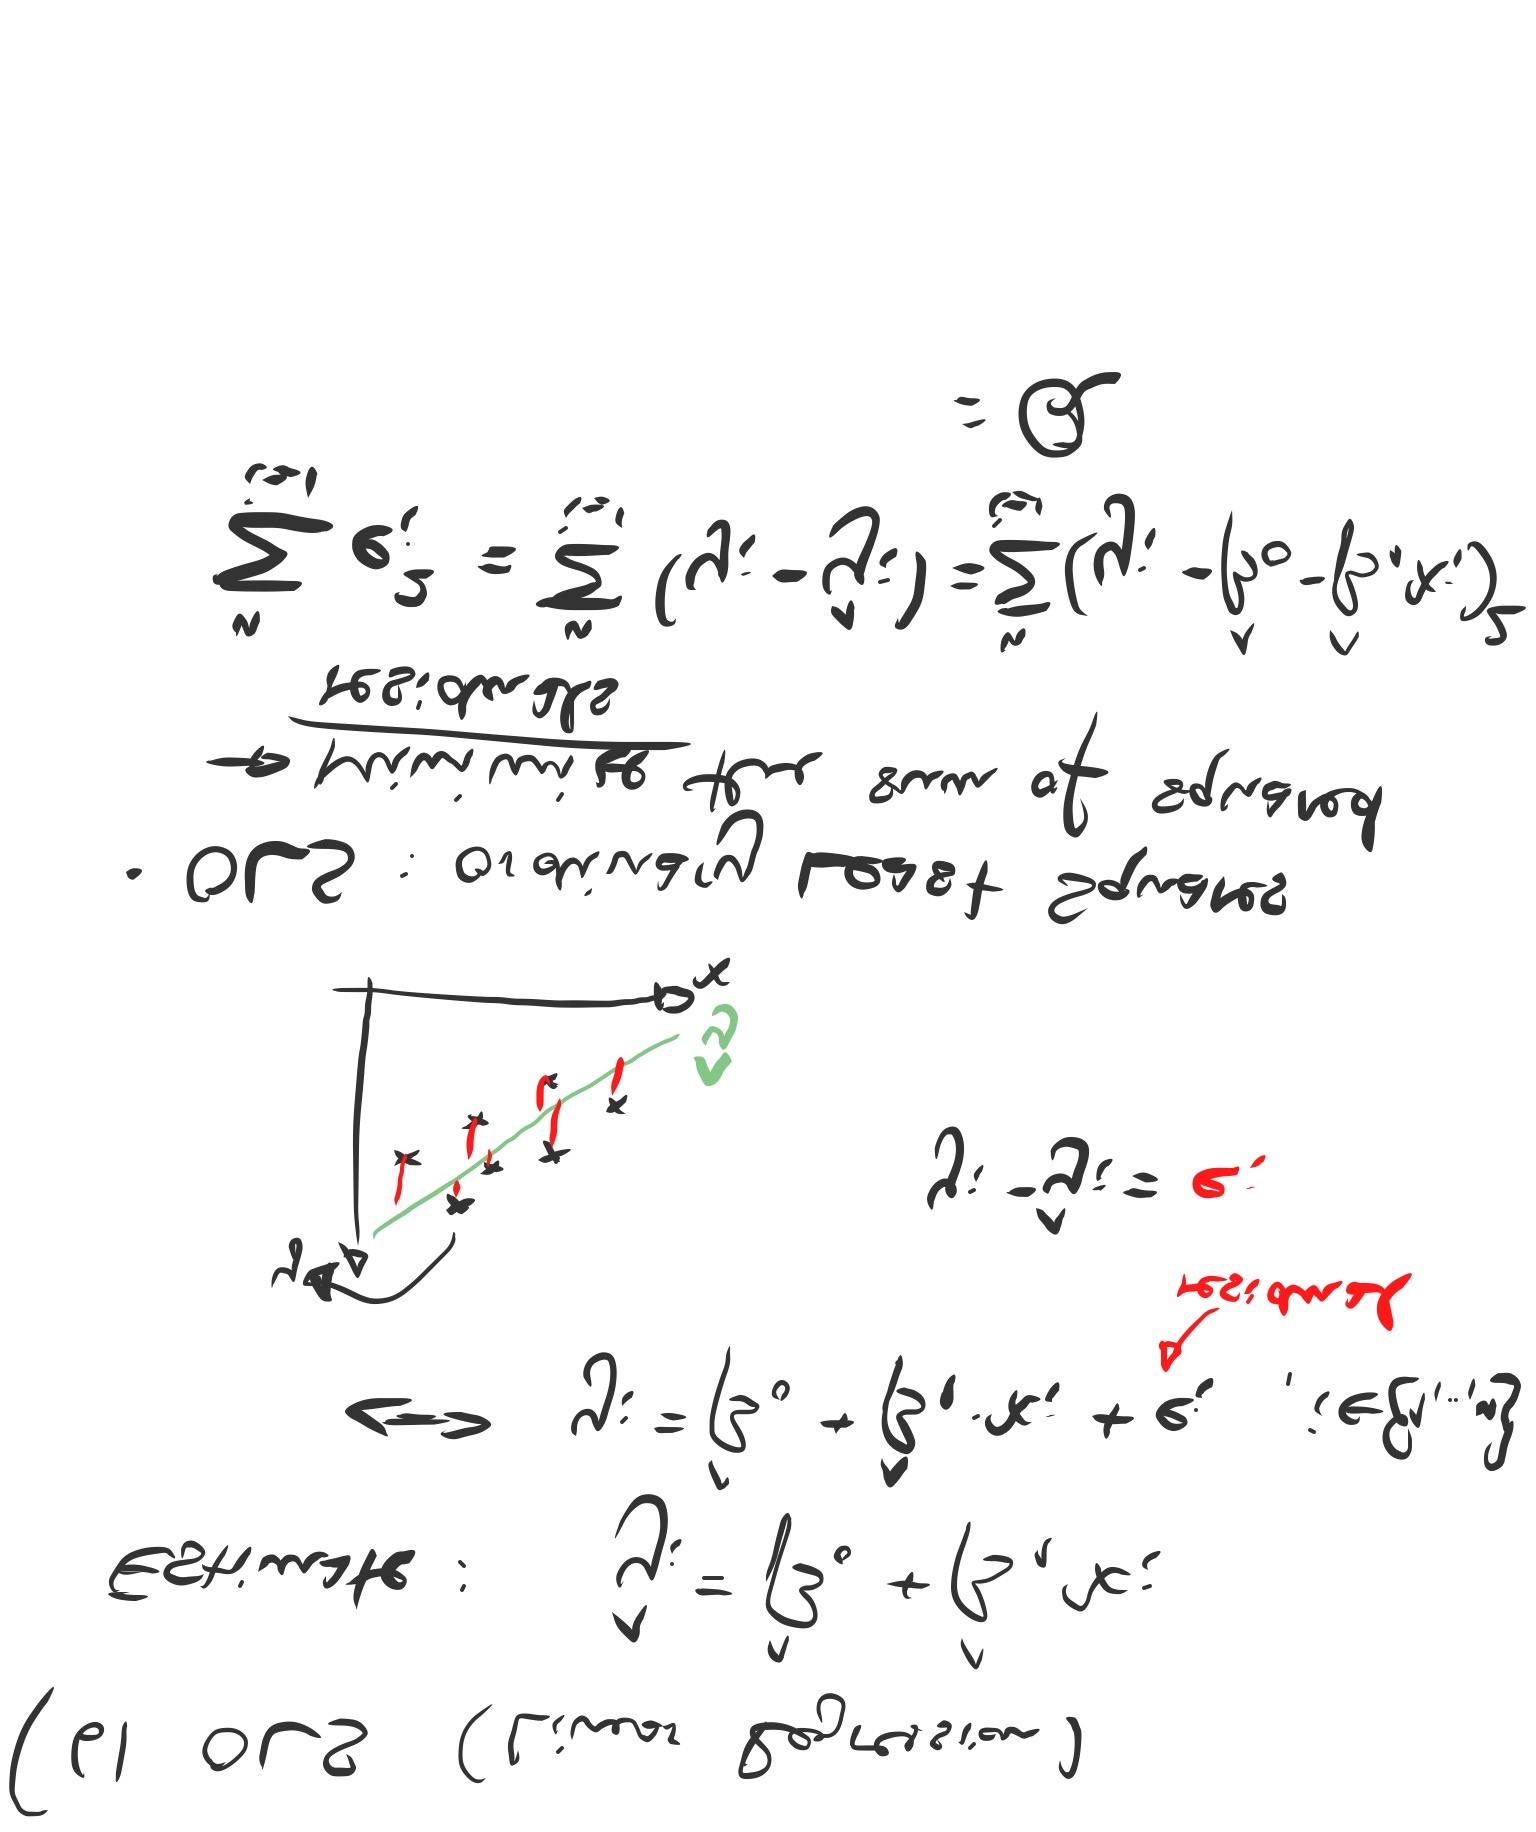 (6) OLS (Linear Regression)
Estimate : ŷᵢ = β̂₀ + β̂₁ xᵢ
⟷ yᵢ = β̂₀ + β̂₁ · xᵢ + eᵢ , i ∈ {1, ..., n}
residual
y
yᵢ - ŷᵢ = eᵢ
ŷ
x
· OLS : Ordinary Least Squares
→ Minimize the sum of squared
residuals
∑ᵢ₌₁ⁿ eᵢ² = ∑ᵢ₌₁ⁿ (yᵢ - ŷᵢ) = ∑ᵢ₌₁ⁿ (yᵢ - β̂₀ - β̂₁ xᵢ)²
= Q